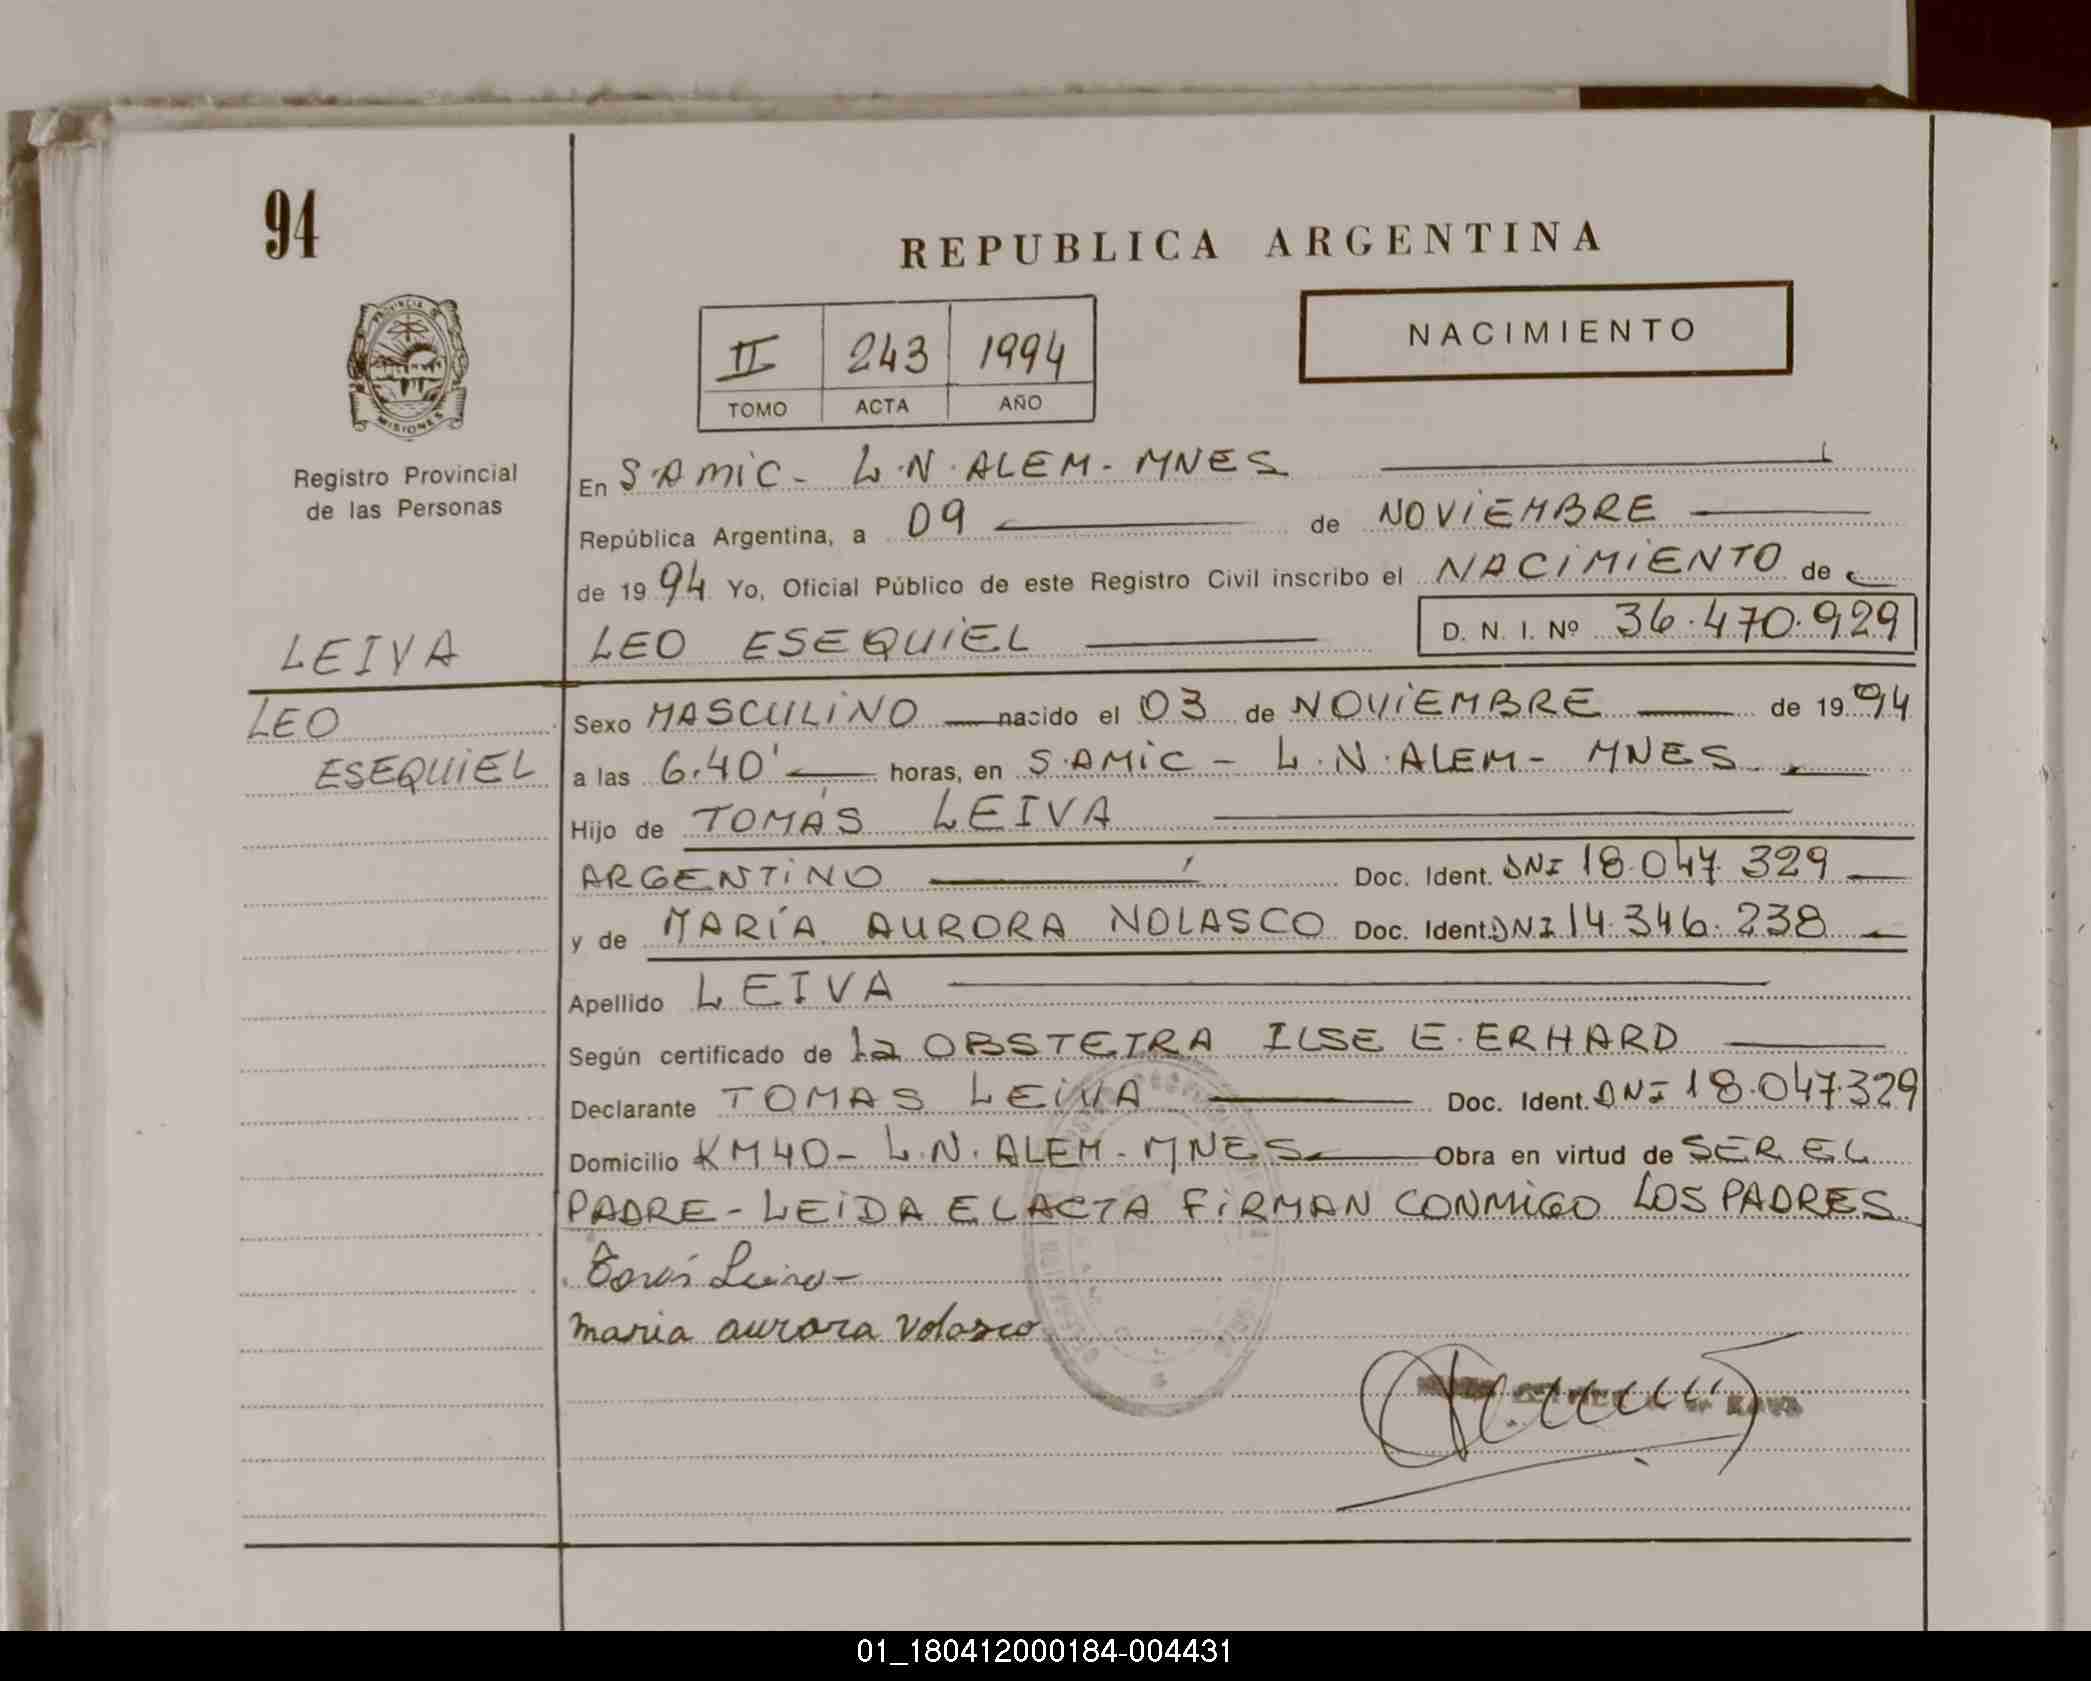 94
REPUBLICA ARGENTINA
NACIMIENTO
II 243 1994
TOMO ACTA AÑO
PROVINCIA DE
MISIONES
Registro Provincial
de las Personas
En S.AMIC - L.N.ALEM - MNES
República Argentina, a 09 de NOVIEMBRE
de 1994 Yo, Oficial Público de este Registro Civil inscribo el NACIMIENTO de
LEO ESEQUIEL D. N. I. Nº 36.470.929
LEIVA
LEO
ESEQUIEL
Sexo MASCULINO nacido el 03 de NOVIEMBRE de 1994
a las 6.40' horas, en S.AMIC - L.N.ALEM - MNES
Hijo de TOMÁS LEIVA
ARGENTINO Doc. Ident. DNI 18.047.329
y de MARÍA AURORA NOLASCO Doc. Ident. DNI 14.346.238
Apellido LEIVA
Según certificado de la OBSTETRA ILSE E. ERHARD
Declarante TOMAS LEIVA Doc. Ident. DNI 18.047.329
Domicilio KM40 - L.N. ALEM - MNES Obra en virtud de SER EL
PADRE - LEIDA EL ACTA FIRMAN CONMIGO LOS PADRES
Tomás Leiva -
maria aurora Nolasco
01_180412000184-004431